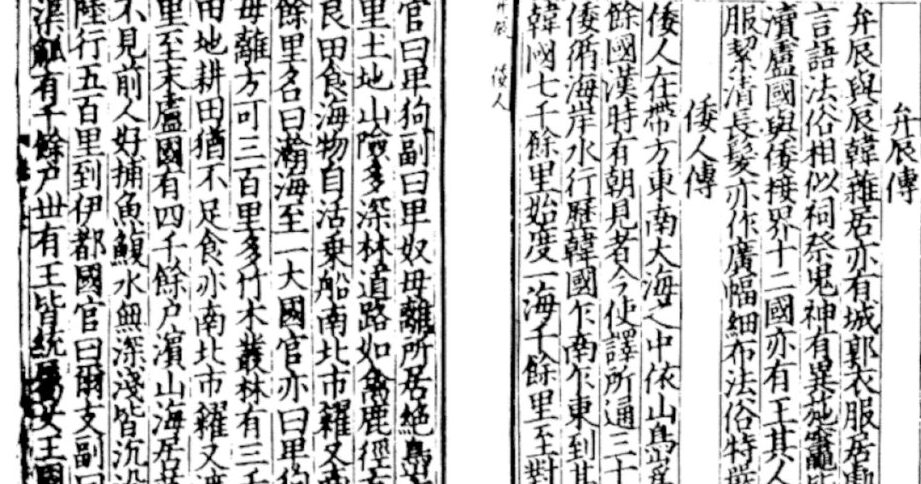 弁辰傳
弁辰與辰韓雜居亦有城郭衣服居處
言語法俗相似祠祭鬼神有異施竈皆
瀆盧國與倭接界十二國亦有王其人
服絜清長髮亦作廣幅細布法俗特嚴
倭人傳
倭人在帶方東南大海之中依山島爲
餘國漢時有朝見者今使譯所通三十
倭循海岸水行歷韓國乍南乍東到其
韓國七千餘里始度一海千餘里至對
弁辰 倭人
官曰卑狗副曰卑奴毋離所居絕島
里土地山險多深林道路如禽鹿徑有
良田食海物自活乗船南北市糴又南
餘里名曰瀚海至一大國官亦曰卑狗
毋離方可三百里多竹木叢林有三千
田地耕田猶不足食亦南北市糴又渡
里至末盧國有四千餘戶濱山海居草
不見前人好捕魚鰒水無深淺皆沉沒
陸行五百里到伊都國官曰爾支副曰
渠觚有千餘戶丗有王皆統屬女王國